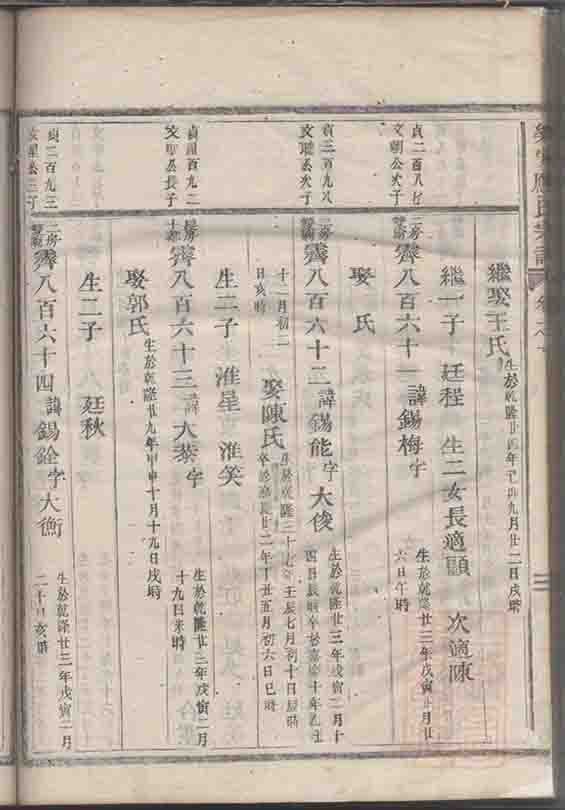 繼娶王氏 生於乾隆廿四年己卯九月廿二日戌時
繼一子 廷程 生二女長適顧 次適陳
貞二百八 文朝公次子
二房 霽八百六十一 諱錫梅字 生於乾隆廿三年戊寅 月廿六日午時
娶 氏
貞二百九八 文 公次子
二房 霽八百六十二 諱錫能字大俊 生於乾隆廿三年戊寅二月十四日辰時卒於嘉慶十年乙丑
十二月初二日亥時 娶陳氏 生於乾隆三十七年壬辰七月初十日辰時 卒於嘉慶廿二年丁丑五月初六日巳時
生二子 淮星 淮笑
貞 百九二 文 公長子
房 霽八百六十三 諱大 字 生於乾隆廿三年戊寅二月十九日未時
娶郭氏 生於乾隆廿九年甲申十月十九日戌時
生二子 廷秋
貞二百九三 文 公三子
二房 霽八百六十四 諱錫銓字大衡 生於乾隆廿三年戊寅二月二十日亥時